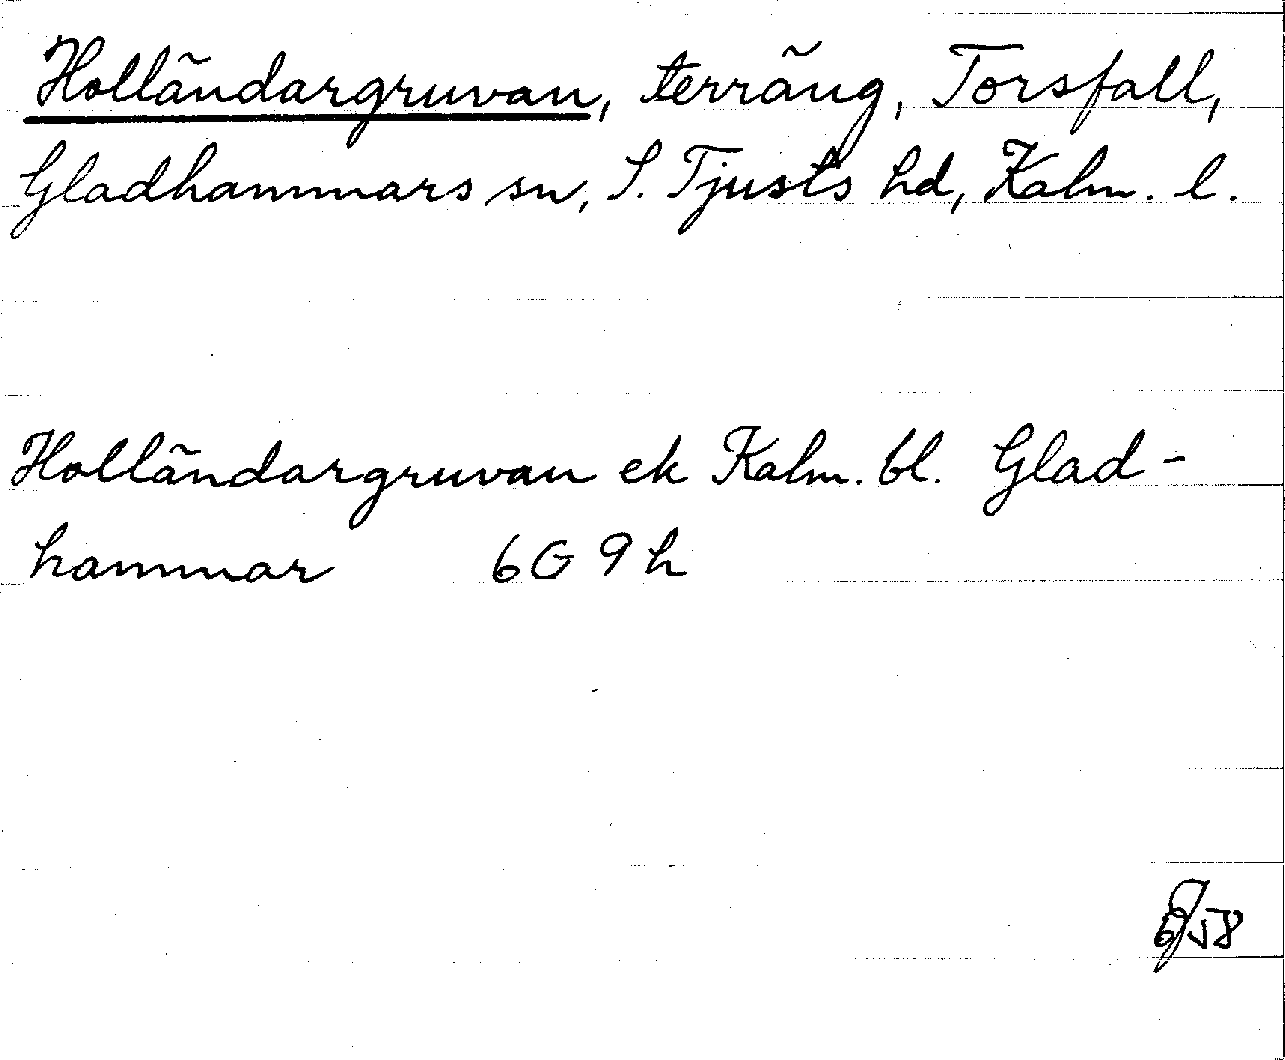 Holländargruvan, terräng, Torsfall,
Gladhammars sn, S. Tjusts hd, Kalm. l.
Holländargruvan ek Kalm. bl. Glad-
hammar 6G 9h